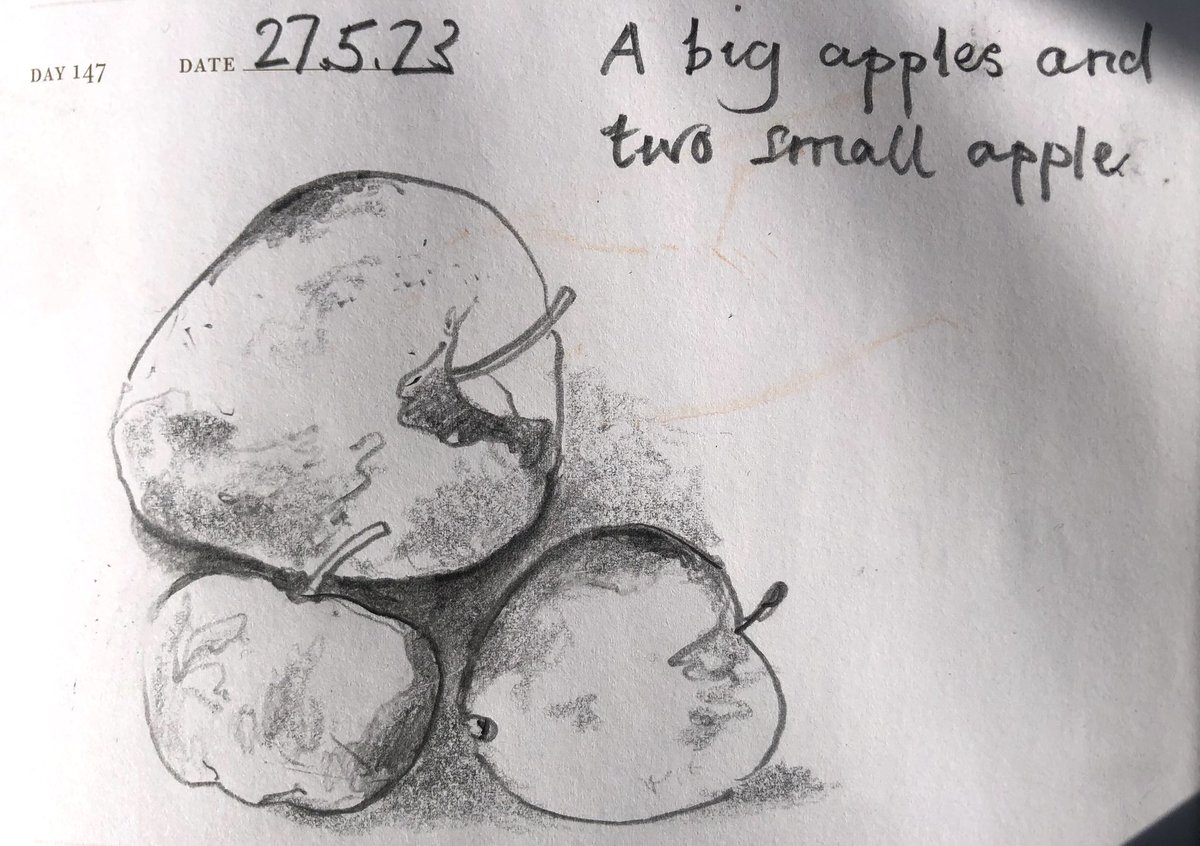 DAY 147 DATE 27.5.23
A big apples and
two small apple.